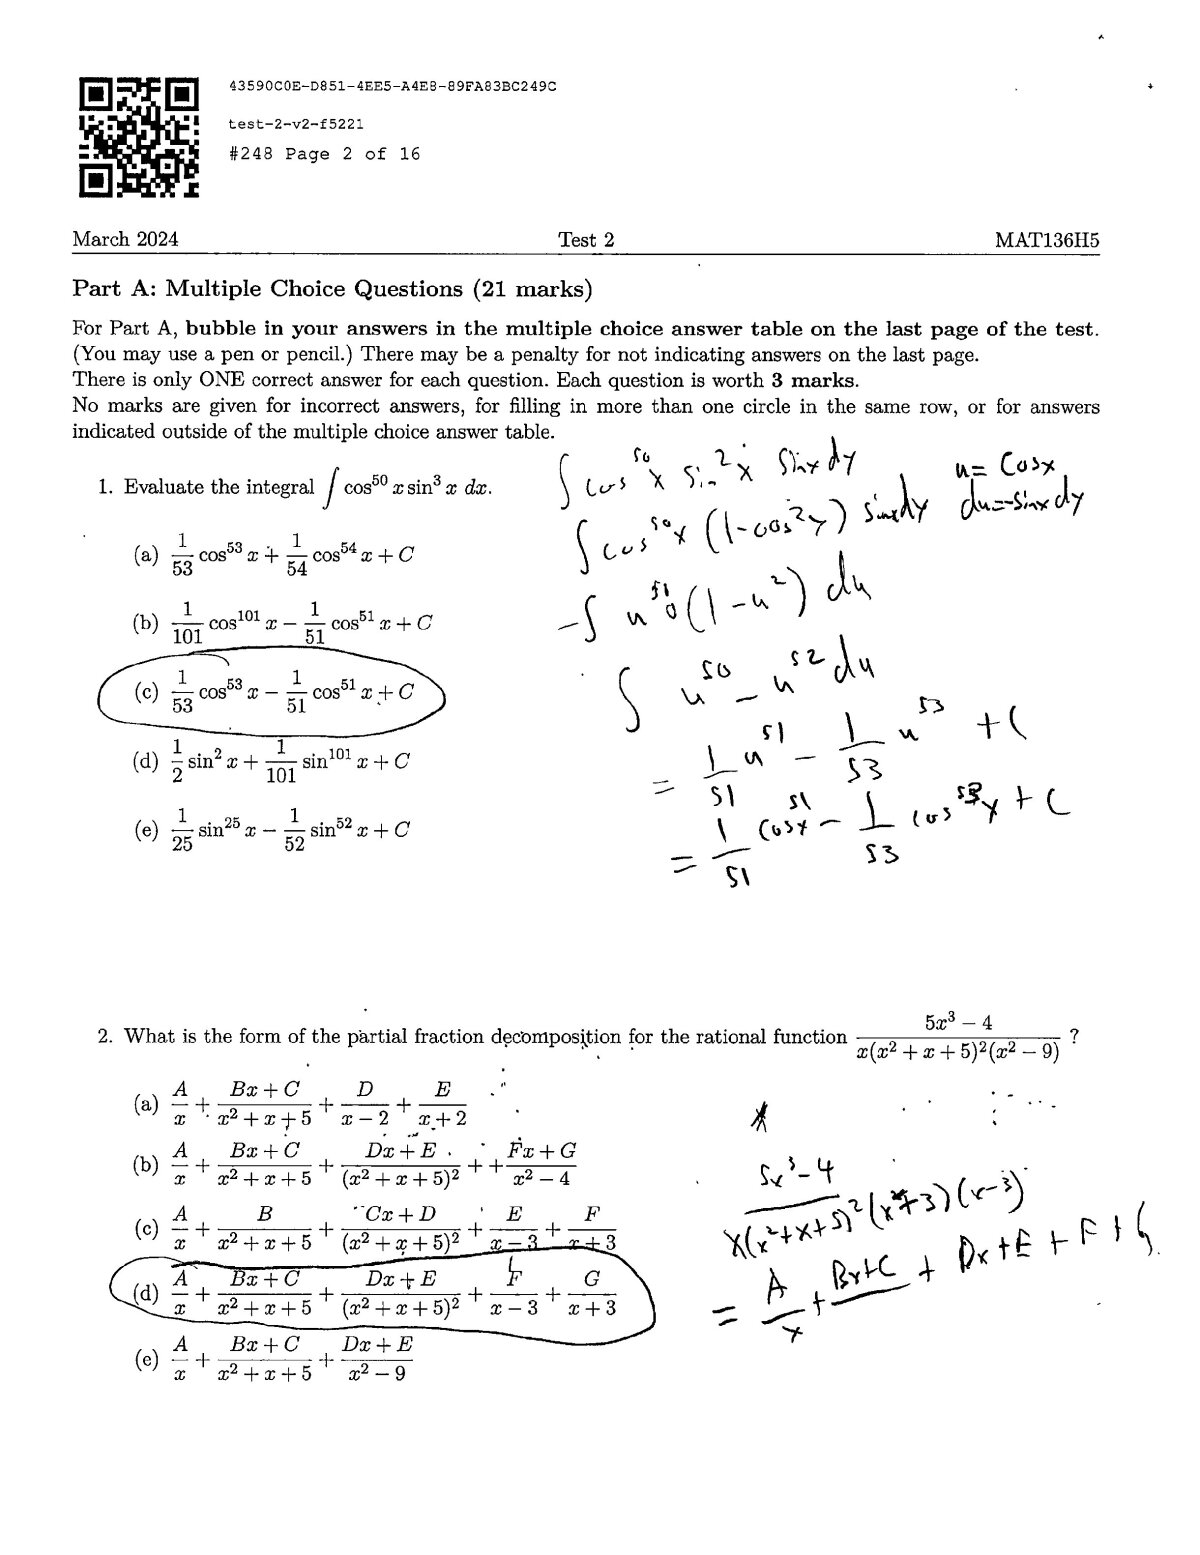 43590C0E-D851-4EE5-A4E8-89FA83BC249C
test-2-v2-f5221
#248 Page 2 of 16
March 2024 Test 2 MAT136H5
Part A: Multiple Choice Questions (21 marks)
For Part A, bubble in your answers in the multiple choice answer table on the last page of the test.
(You may use a pen or pencil.) There may be a penalty for not indicating answers on the last page.
There is only ONE correct answer for each question. Each question is worth 3 marks.
No marks are given for incorrect answers, for filling in more than one circle in the same row, or for answers
indicated outside of the multiple choice answer table.
1. Evaluate the integral ∫ cos^50 x sin^3 x dx.
(a) 1/53 cos^53 x + 1/54 cos^54 x + C
(b) 1/101 cos^101 x − 1/51 cos^51 x + C
(c) 1/53 cos^53 x − 1/51 cos^51 x + C
(d) 1/2 sin^2 x + 1/101 sin^101 x + C
(e) 1/25 sin^25 x − 1/52 sin^52 x + C
∫ cos^50 x sin^2 x sinx dy u = cosx
∫ cos^50 x (1-cos^2 y) sinx dy du=-sinx dy
-∫ u^50 (1-u^2) du
∫ u^50 - u^52 du
= 1/51 u^51 - 1/53 u^53 + C
= 1/51 cosx^51 - 1/53 cos^53 y + C
2. What is the form of the partial fraction decomposition for the rational function (5x^3 − 4)/(x(x^2 + x + 5)^2(x^2 − 9)) ?
(a) A/x + (Bx + C)/(x^2 + x + 5) + D/(x − 2) + E/(x + 2)
(b) A/x + (Bx + C)/(x^2 + x + 5) + (Dx + E)/(x^2 + x + 5)^2 + + (Fx + G)/(x^2 − 4)
(c) A/x + B/(x^2 + x + 5) + (Cx + D)/(x^2 + x + 5)^2 + E/(x − 3) + F/(x + 3)
(d) A/x + (Bx + C)/(x^2 + x + 5) + (Dx + E)/(x^2 + x + 5)^2 + F/(x − 3) + G/(x + 3)
(e) A/x + (Bx + C)/(x^2 + x + 5) + (Dx + E)/(x^2 − 9)
(5x^3-4)/(x(x^2+x+5)^2(x+3)(x-3))
= A/x + Bx+C + Dx+E + F + G